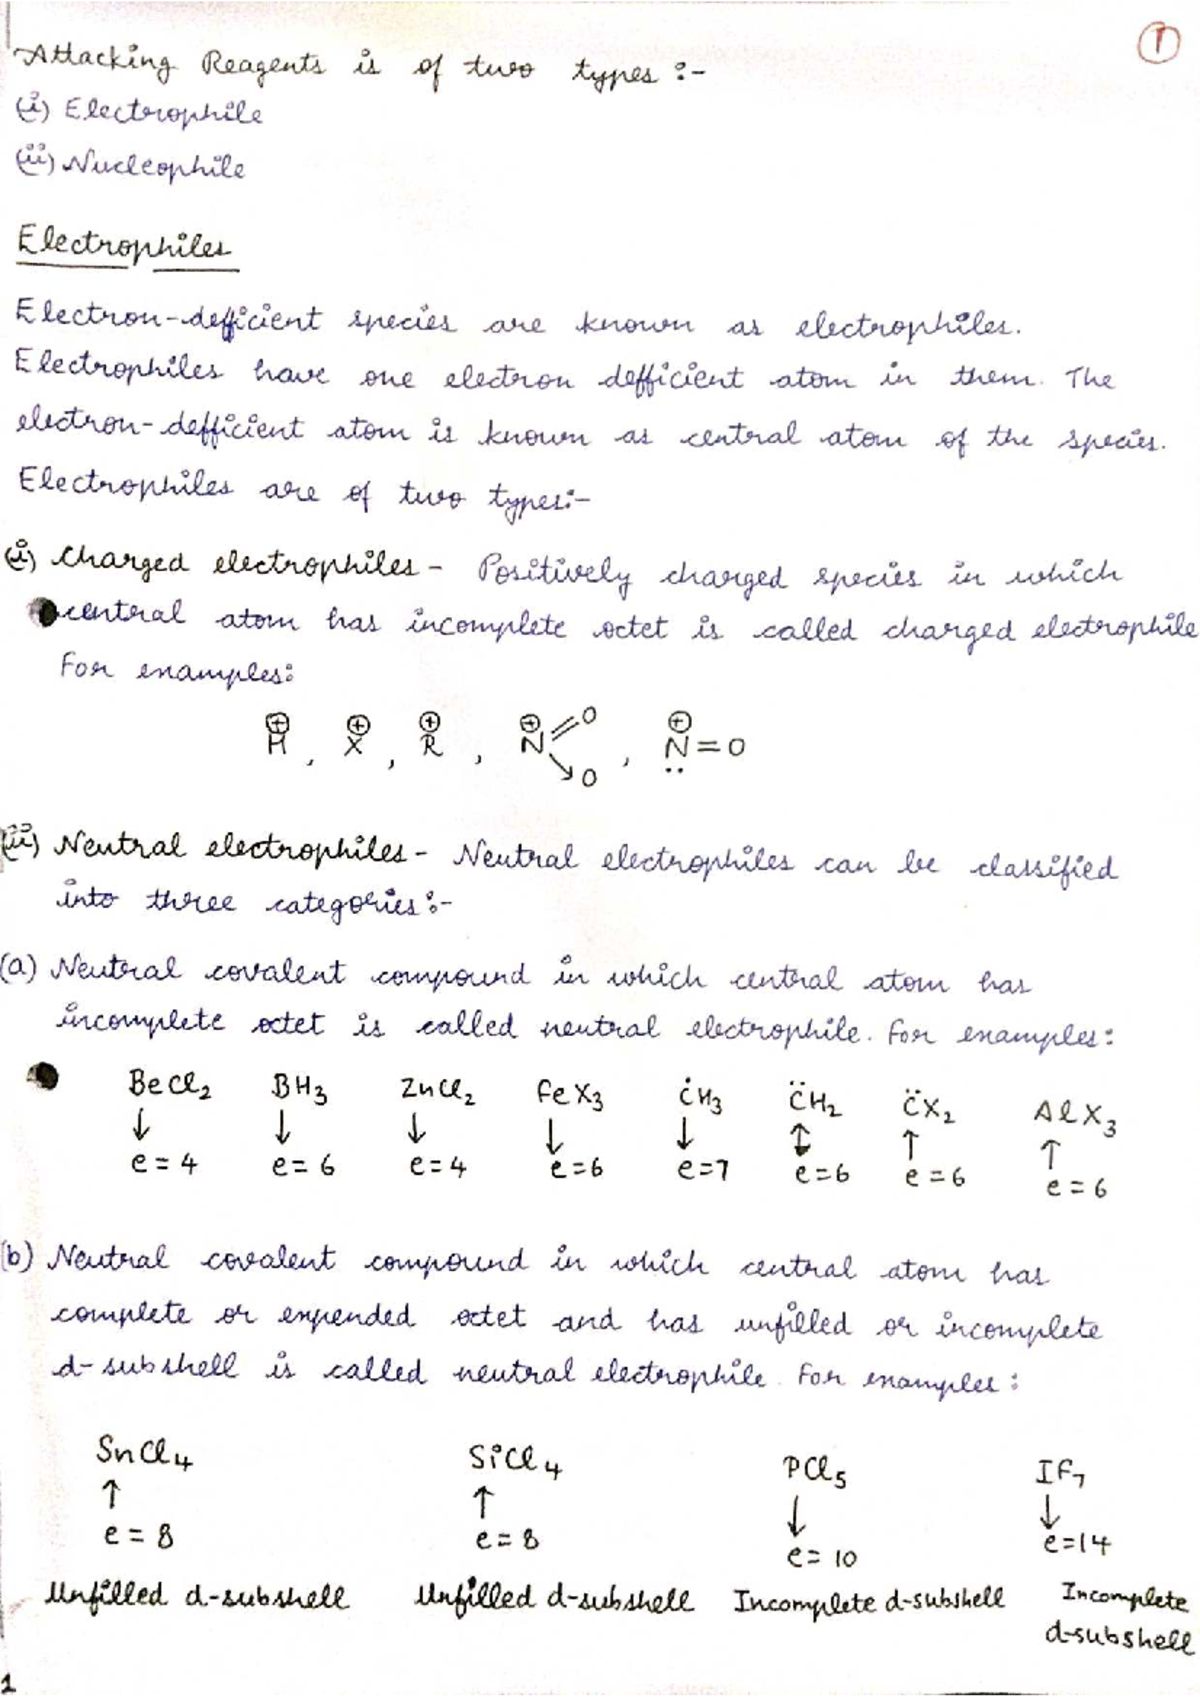 1
Attacking Reagents is of two types :-
(i) Electrophile
(ii) Nucleophile
Electrophiles
Electron-defficient species are known as electrophiles.
Electrophiles have one electron defficient atom in them. The
electron-defficient atom is known as central atom of the species.
Electrophiles are of two types:-
(i) Charged electrophiles - Positively charged species in which
central atom has incomplete octet is called charged electrophile
For examples:
⊕ ⊕ ⊕ ⊕ O ⊕
H , X , R , N , N̤ = O
O
(ii) Neutral electrophiles - Neutral electrophiles can be classified
into three categories :-
(a) Neutral covalent compound in which central atom has
incomplete octet is called neutral electrophile. For examples:
BeCl₂ BH₃ ZnCl₂ FeX₃ ĊH₃ C̈H₂ C̈X₂ AlX₃
↓ ↓ ↓ ↓ ↓ ↕ ↑ ↑
e = 4 e = 6 e = 4 e = 6 e = 7 e = 6 e = 6 e = 6
(b) Neutral covalent compound in which central atom has
complete or expended octet and has unfilled or incomplete
d-subshell is called neutral electrophile. For examples :
SnCl₄ SiCl₄ PCl₅ IF₇
↑ ↑ ↓ ↓
e = 8 e = 8 e = 10 e = 14
Unfilled d-subshell Unfilled d-subshell Incomplete d-subshell Incomplete
d-subshell
1